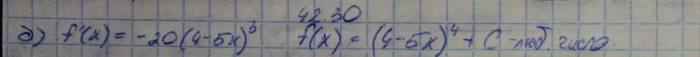 42.30
д) f'(x) = -20(4-5x)³ f(x) = (4-5x)⁴ + C - люб. число.